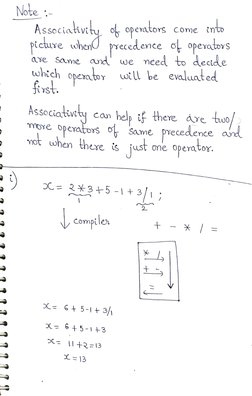 Note :-
Associativity of operators come into
picture when precedence of operators
are same and we need to decide
which operator will be evaluated
first.
Associativity can help if there are two/
more operators of same precedence and
not when there is just one operator.
i) x = 2*3+5-1+3/1 ;
1 2
compiler + - * / =
* /
+ -
=
x = 6+5-1+3/1
x = 6+5-1+3
x = 11+2=13
x=13